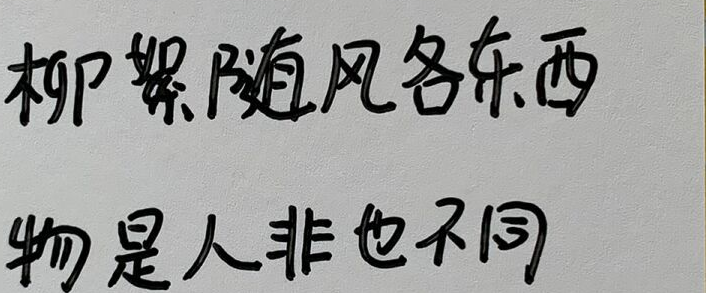 柳絮随风各东西
物是人非也不同